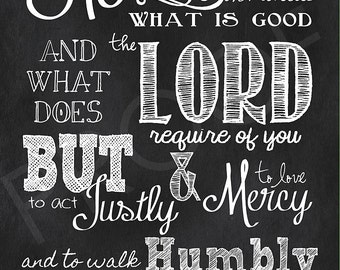 WHAT IS GOOD
AND WHAT DOES
the LORD
require of you
BUT
to act Justly
&
to love Mercy
and to walk Humbly